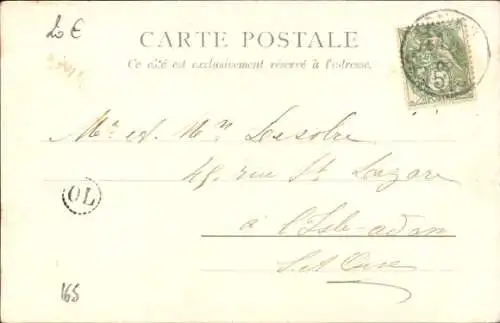 CARTE POSTALE
Ce côté est exclusivement réservé à l'adresse.
5
Mr et Mme Lesobre
49, rue St Lazare
OL
à l'Isle-adam
S. et Oise
165